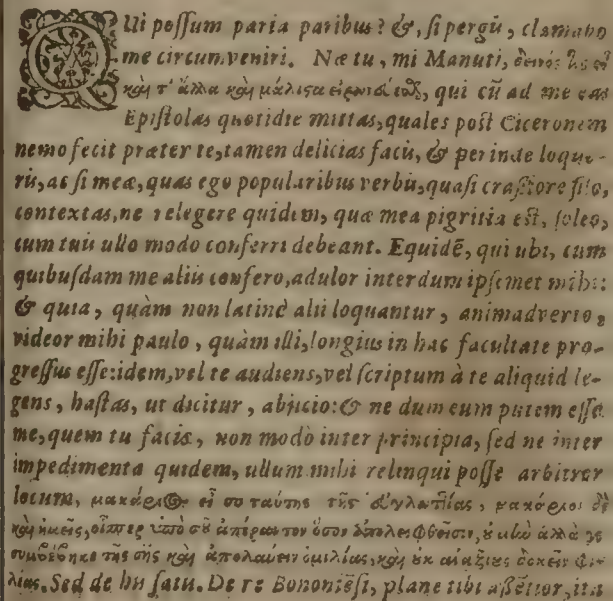 QUi possum paria paribus? &, si pergū, clamabo
me circumveniri. Næ tu, mi Manuti, δεινός
καὶ τ' ἄλλα καὶ μάλιστα, qui cū ad me eas
Epistolas quotidie mittas, quales post Ciceronem
nemo fecit præter te, tamen delicias facis, & perinde loque-
ris, ac si meæ, quas ego popularibus verbis, quasi crassiore filo,
contextas, ne relegere quidem, quæ mea pigritia est, soleo,
cum tuis ullo modo conferri debeant. Equidē, qui ubi, cum
quibusdam me aliis confero, adulor interdum ipsemet mihi:
& quia, quàm non latinè alii loquantur, animadverto,
videor mihi paulo, quàm illi, longius in hac facultate pro-
gressus esse: idem, vel te audiens, vel scriptum à te aliquid le-
gens, hastas, ut dicitur, abjicio: & ne dum eum putem esse
me, quem tu facis, non modò inter principia, sed ne inter
impedimenta quidem, ullum mihi relinqui posse arbitrer
locum, μακάριος εἶ σὺ ταύτης τῆς εὐγλωττίας, μακάριοι δὲ
καὶ ἡμεῖς, οἵπερ ὑπὸ σοῦ ἀπέραντον ὅσον ἀπολειφθεῖσιν,
συμβέβηκε τῆς σῆς καὶ ἀπολαύειν ὁμιλίας, καὶ οὐκ ἀναξίως δοκεῖν φι-
λίας. Sed de his satis. De re Bononiēsi, plane tibi assētior, ita